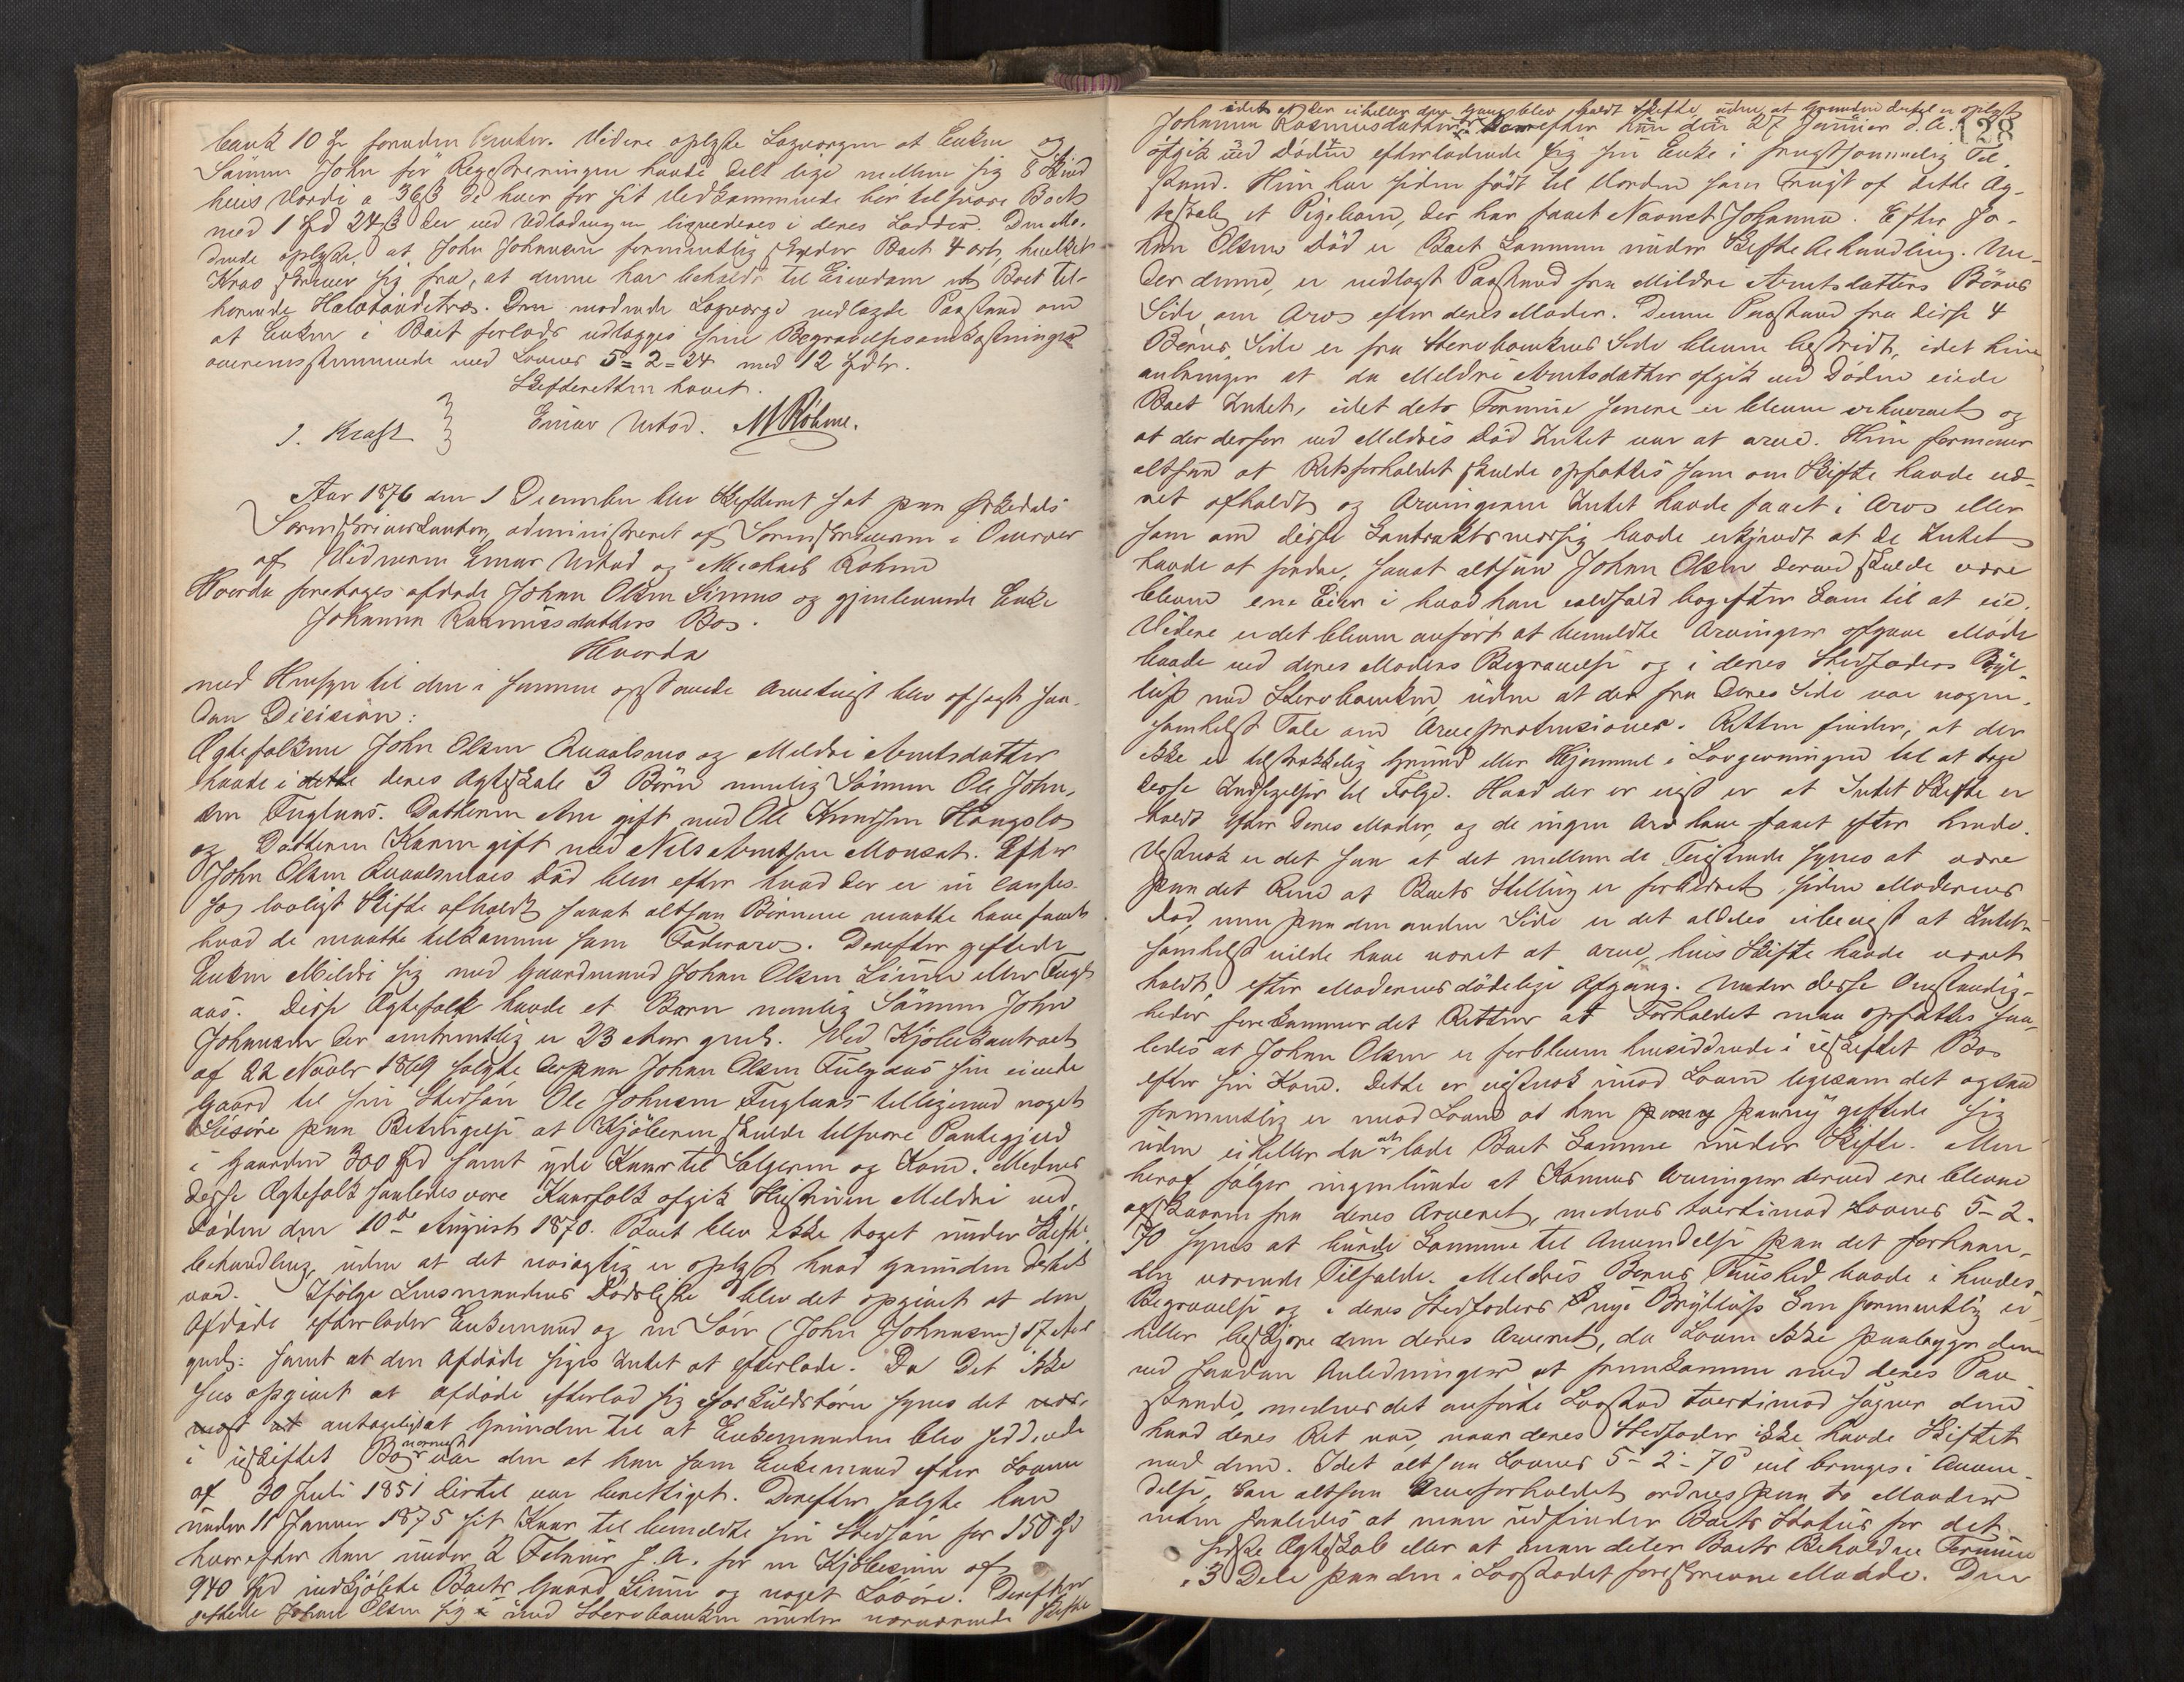 bank 10 foruden Renter. Videre oplyste Laugvergen at Enken og
Sønnen John før Registreringen havde delt lige mellem sig 8 Skind
hvis Værdi a 36 ß de hver for sit Vedkommende bør tilsvare Boet
med 1 Spd 24 ß der ved Udlodningen ligvederes i deres Lodder. Den Mø-
dende oplyste, at John Johnsen formentlig skylder Boet 4 ort, hvilket
Krav skriver sig fra, at denne har beholdt til Eiendom et Boet til-
hørende. Den mødende Lagværge nedlagde Paastand om
at Enken i Boet forlods udlægges sine Begravelsesomkostninger
overensstemmende med Lovens 5=2=24 med 12 Spdlr.
Skifteretten hævet.
J. Kraft Einar Ustad. M Rohme.
Aar 1876 den 1 December blev Skifteret sat paa Ørkedals
Sorenskriverkontor, administreret af Sorenskriveren i Overvær
af Vidnerne Einar Ustad og Michael Rohme
Hvorda foretoges afdøde Johan Olsen Linns og gjenlevende Enke
Johanna Rasmusdatters Bo.
Hvorda
med Hensyn til den i samme opstaaede Arvetvist blev afsagt saa-
dan Decision:
Ægtefolkene John Olsen Kvaalsnes og Meldri Arntsdatter
havde i dette deres Ægteskab 3 Børn nemlig Sønnen Ole John-
sen Fuglaas. Datteren Ane gift med Ole Knudsen Hongslo
og Datteren Karen gift med Nils Arntsen Monset. Efter
John Olsen Kvaalsnæs Død blev efter hvad der er in confes-
so lovligt Skifte afholdt saaat altsaa Børnene maatte have faaet
hvad de maatte tilkomme som Faderarv. Derefter giftede
Enken Mildri sig med Gaardmand Johan Olsen Linn eller Fugl-
aas. Disse Ægtefolk havde et Barn nemlig Sønnen John
Johnsen der omtrentlig er 23 Aar gml. Ved Kjøbekontract
af 22 Novbr 1869 solgte derpaa Johan Olsen Fuglaas sin eiende
Gaard til sin Stedsøn Ole Johnsen Fuglaas tilligemed noget
Løsøre paa Betingelse at Kjøberen skulde tilsvare Pantegjæld
i Gaarden 300 Spd samt yde Kaar til Sælgeren og Kone. Medens
disse Ægtefolk saaledes vare Kaarfolk afgik Hustruen Meldri ved
Døden den 10de August 1870. Boet blev ikke taget under Skifte-
behandling, uden at det nøiagtig er oplyst hvad Grunden dertil
var. Ifølge Lensmandens Dødsliste blev det opgivet at den
Afdøde efterlader Enkemand og en Søn (John Johnsen) 17 Aar
gml: samt at den Afdøde siges Intet at efterlade. Da Det ikke
sees opgivet at afdøde efterlod sig særkuldsbørn synes det vær-
mest at antageligst at Grunden til at Enkemanden blev siddende
i uskiftet Bo nærmest var den at han som Enkemand efter Loven
af 30 Juli 1851 dertil var berettiget. Derefter solgte han
under 11 Januar 1875 sit Kaar til bemeldte sin Stedsøn for 150 Spd
hvorefter han under 2 Februar s. A. for en Kjøbesum af
940 Spd indkjøbte Boets Gaard Linn og noget Løsøre. Derefter
giftede Johan Olsen sig med Stervboenken under nærværende Skifte
idet at der eiheller den Gang blev holdt Skifte uden at Grunden dertil er oplyst
Johanna Rasmusdatter Derefter han den 27 Januar d. A. 128
afgik ved Døden efterladende sig sin Enke i frugtsommelig Til-
stand. Hun har siden født til Verden som Frugt af dette Æg-
teskab et Pigebarn, der har faaet Navnet Johanna. Efter Jo-
han Olsens Død er Boet kommen under Skiftebehandling. Un-
der denne, er nedlagt Paastand fra Mildri Arntsdatters Børns
Side om Arv efter deres Moder. Denne Paastand fra disse 4
Børns Side er fra Stervboenkens Side bleven bestridt, idet hun
anbringer at da Meldri Arntsdatter afgik ved Døden eiede
Boet Intet, idet dets Formue senere er bleven erhvervet og
at der derfor ved Meldris Død Intet var at arve. Hun formener
altsaa at Retsforholdet skulde opfattes som om Skifte havde væ-
ret afholdt og Arvingerne Intet havde faaet i Arv eller
som om disse Kontraktsmæssig havde erkjendt at de Intet
havde at fordre, saaat altsaa Johan Olsen derved skulde være
bleven ene Eier i hvad han ialdfald bagefter kom til at eie.
Videre er det bleven anført at bemeldte Arvinger afgave Møde
baade ved deres Moders Begravelse og i deres Stedfaders Bryl-
lup med Stervboenken, uden at der fra deres Side var nogen-
somhelst Tale om Arveprætensioner. Retten finder, at der
ikke er tilstrækkelig Grund eller Hjemmel i Lovgivningen til at tage
disse Indsigelser til Følge. Hvad der er vist er at Intet Skifte er
holdt efter deres Moder, og de ingen Arv have faaet efter hende.
Vistnok er det saa at det mellem de Tvistende synes at være
paa det Rene at Boets Stilling er forbedret siden Moderens
Død, men paa den anden Side er det aldeles ubevist at Intet-
somhelst vilde have været at arve, hvis Skifte havde været
holdt, efter Moderens dødelige Afgang. Under disse Omstændig-
heder forekommer det Retten at Forholdet maa opfattes saa-
ledes at Johan Olsen er forbleven hensiddende i uskiftet Bo
efter sin Kone. Dette er vistnok imod Loven ligesom det ogsaa
formentlig er imod Loven at han paany paany giftede sig
uden eiheller da at lade Boet komme under Skifte. Men
heraf følger ingenlunde at Konens Arvinger derved ere blevne
afskaarne fra deres Arveret, medens tvertimod Lovens 5-2-
70 synes at burde komme til Anvendelse paa det forhaan-
den værende Tilfælde. Meldris Børns Taushed baade i hendes
Begravelse og i deres Stedfaders nye Bryllup kan formentlig ei
heller beskjære dem deres Arveret, da Loven ikke paalægger dem
ved saadan Anledninger at fremkomme med deres Paa-
stande, medens det anførte Lovsted tvertimod siger dem
hvad deres Ret var, naar deres Stedfader ikke havde Skiftet
med dem. Idet altsaa Lovens 5-2-70 vil bringes i Anven-
delse, kan altsaa Arveforholdet ordnes paa to Maader
enten saaledes at man udfinder Boets Status for det
første Ægteskab eller at man deler Boets Beholdne Formue
i 3 Dele paa den i Lovstedet foreskrevne Maade. Den